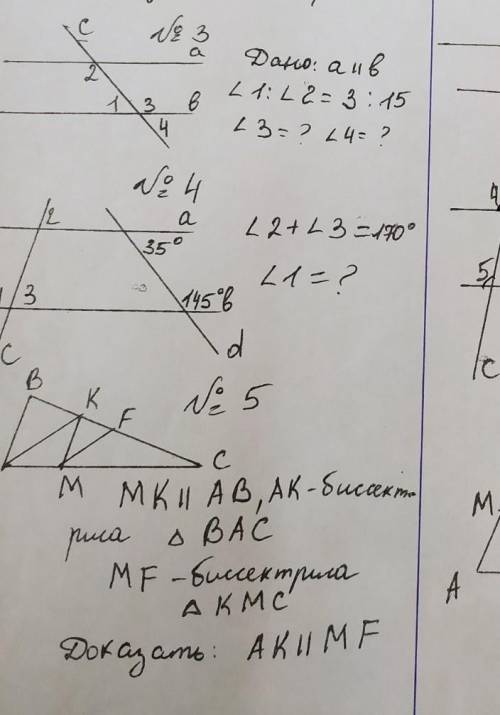 № 3
c
a
2
1 3 в
4
Дано: a ıı в
∠1:∠2 = 3 : 15
∠3 = ? ∠4 = ?
№ 4
2 a
35°
3 145° в
c d
∠2 + ∠3 = 170°
∠1 = ?
№ 5
B K F
M C
MK ıı AB, AK-биссект-
риса △ BAC
MF -биссектриса
△ KMC
Доказать: AK ıı MF
4
5
C
M
A